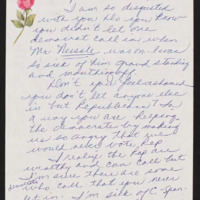 I am so disgusted
with you Do you know
you didn't let one
democrat call in when
Mr. was on. I was
so sick of him grand standing
and mouthing off.
Don't you
you don't let anyone else
in but Republicans? In
a way you are helping
the democrats by making
us so angry that you
would never vote rep
I realize the Rep are
wealthy so can call but
I'm sure there are some
democrats
who call that you never
let in. I'm sick of